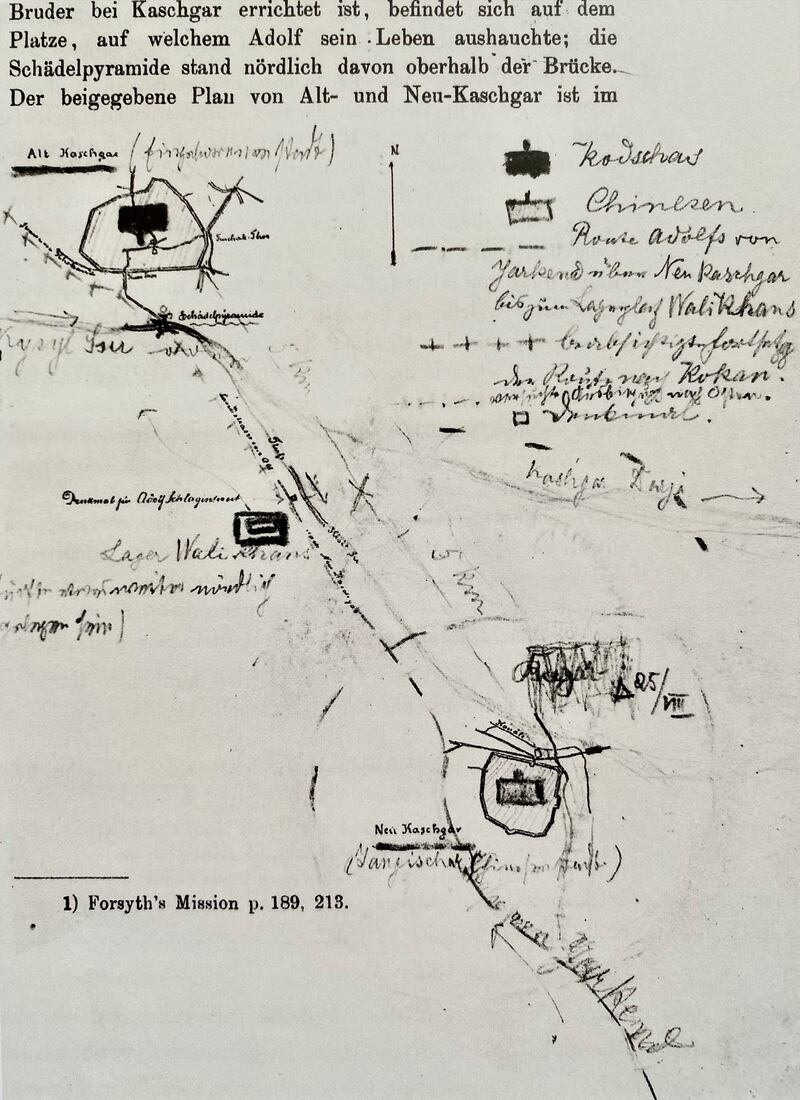 Bruder bei Kaschgar errichtet ist, befindet sich auf dem
Platze, auf welchem Adolf sein Leben aushauchte; die
Schädelpyramide stand nördlich davon oberhalb der Brücke.
Der beigegebene Plan von Alt- und Neu-Kaschgar ist im
Alt Kaschgar (Eingeborenenstadt)
N
Kodschas
Chinesen
Route Adolfs von
Jarkend über Neu Kaschgar
bis zum Lagerplatz Walikhans
beabsichtigte Fortsetzg
der Route nach Kokan.
Denkmal.
Schädelpyramide
Kysyl Ssu
5 km
Kaschgar Darja
Denkmal für Adolf Schlagintweit
Lager Walikhans
nördlich
5 km
25/VIII
Neu Kaschgar
(Jangischar, Chinesenstadt)
von Yarkend
1) Forsyth's Mission p. 189, 213.